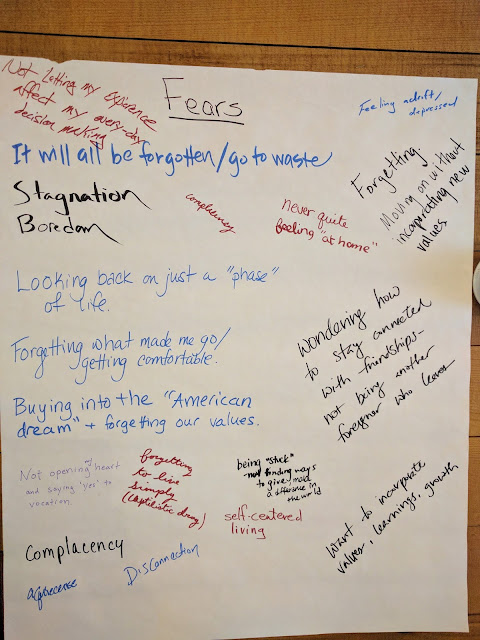 Not letting my experience
affect my every-day
decision making
Fears
Feeling adrift/
depressed
It will all be forgotten/go to waste
Stagnation
Boredom
complacency
never quite
feeling "at home"
Forgetting.
Moving on without
incorporating new
values
Looking back on just a "phase"
of life.
Forgetting what made me go/
getting comfortable.
Buying into the "American
dream" + forgetting our values.
wondering how
to stay connected
with friendships-
not being another
foreigner who leaves
Not opening my heart
and saying 'yes' to
vocation
forgetting
to live
simply
being "stuck"
-not finding ways
to give/make
a difference in
the world
self-centered
living
Want to incorporate
values, learnings, growth
Complacency
Disconnection